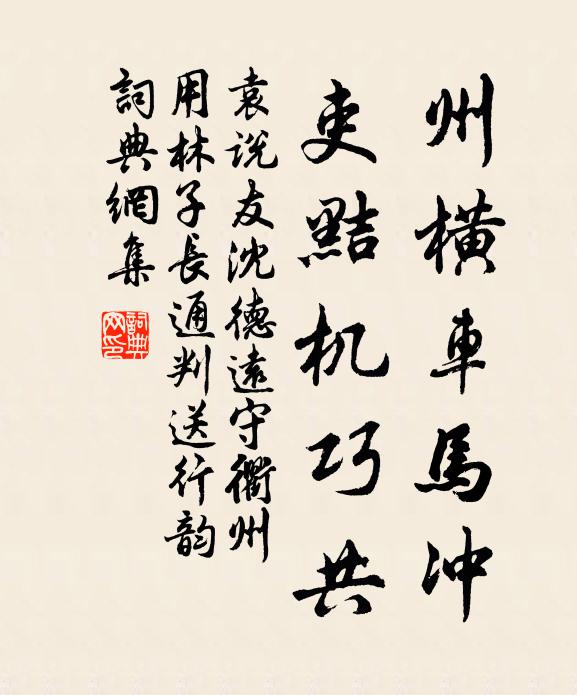 州橫車馬冲
吏黠机巧共
袁说友沈德遠守衢州
用林子長通判送行韵
詞典網集
詞典網印